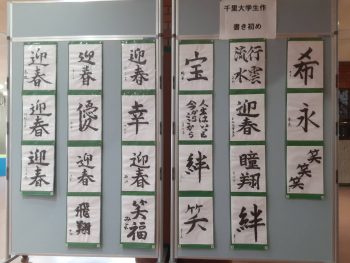 千里大学生作
書き初め
希
永
笑笑笑
行雲
流水
迎春
瞳翔
絆
宝
人生は
絆
笑
迎春
幸
迎春
笑福
迎春
優
迎春
飛翔
迎春
迎春
迎春